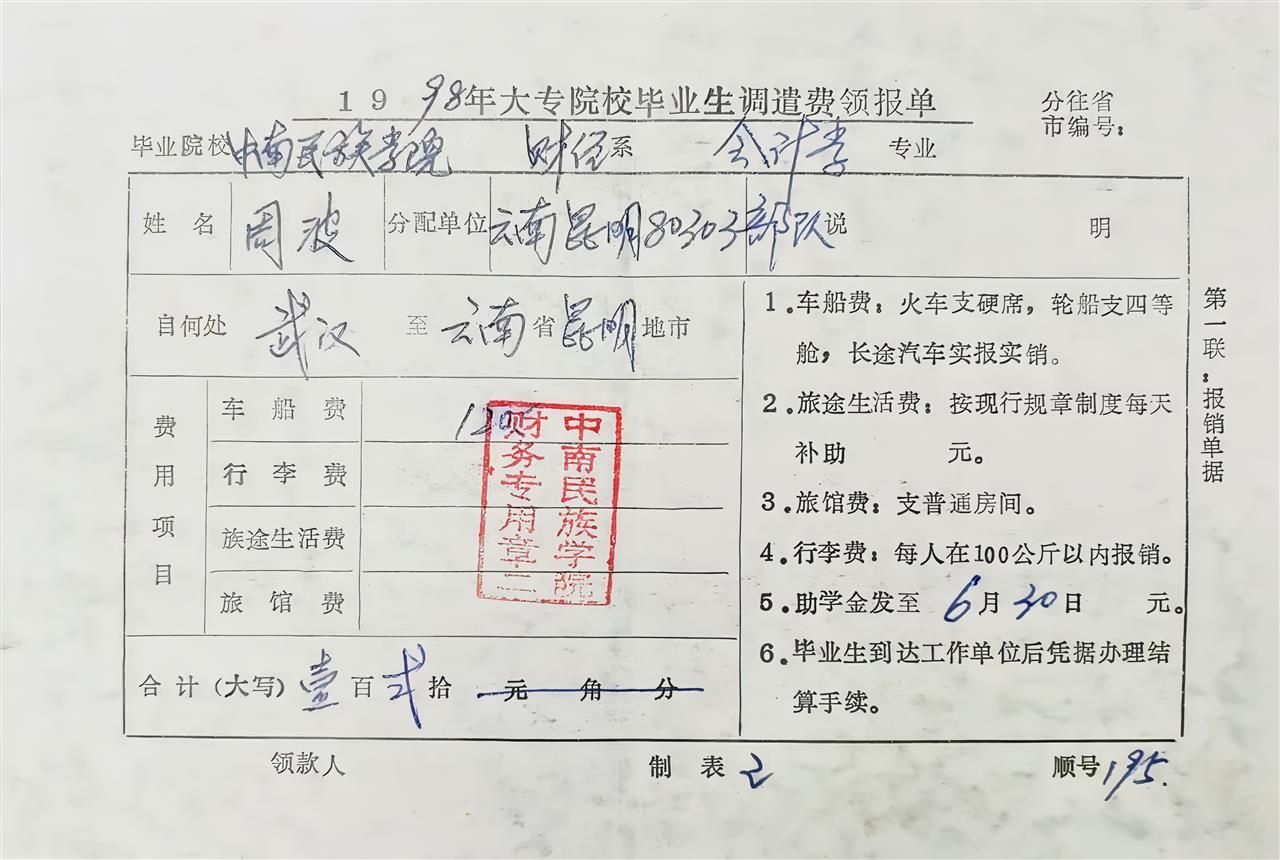 1998年大专院校毕业生调遣费领报单
分往省
市编号：
毕业院校 中南民族学院 财经系 会计学 专业
姓名 周波 分配单位 云南昆明80303部队 说明
自何处 武汉 至 云南省昆明地市
费用项目
车船费 120
行李费
族途生活费
旅馆费
中南民族学院
财务专用章二
合计（大写）壹百弍拾元角分
1．车船费：火车支硬席，轮船支四等
舱，长途汽车实报实销。
2．旅途生活费：按现行规章制度每天
补助 元。
3．旅馆费：支普通房间。
4．行李费：每人在100公斤以内报销。
5．助学金发至 6月30日 元。
6．毕业生到达工作单位后凭据办理结
算手续。
第一联：报销单据
领款人 制表 顺号195.